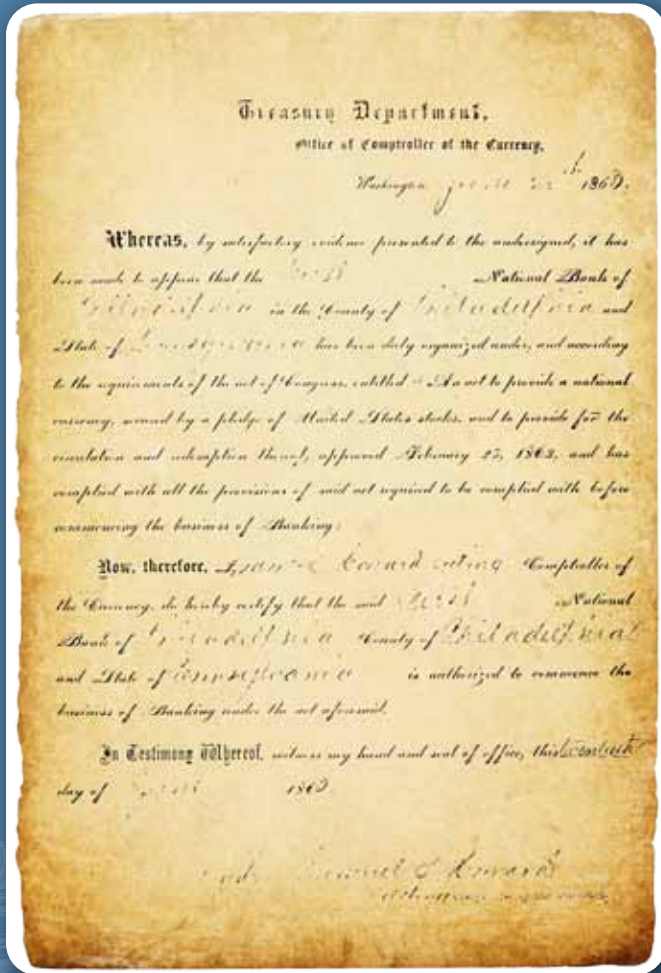 Treasury Department,
Office of Comptroller of the Currency,
Washington June 1863.
Whereas, by satisfactory evidence presented to the undersigned, it has
been made to appear that the First National Bank of
Philadelphia in the County of Philadelphia and
State of Pennsylvania has been duly organized under, and according
to the requirements of the act of Congress, entitled "An act to provide a national
currency, secured by a pledge of United States stocks, and to provide for the
circulation and redemption thereof, approved February 25, 1863, and has
complied with all the provisions of said act required to be complied with before
commencing the business of Banking:
Now, therefore, I, Samuel Howard acting Comptroller of
the Currency, do hereby certify that the said First National
Bank of Philadelphia County of Philadelphia
and State of Pennsylvania is authorized to commence the
business of Banking under the act aforesaid.
In Testimony Whereof, witness my hand and seal of office, this
day of June 1863
Samuel Howard